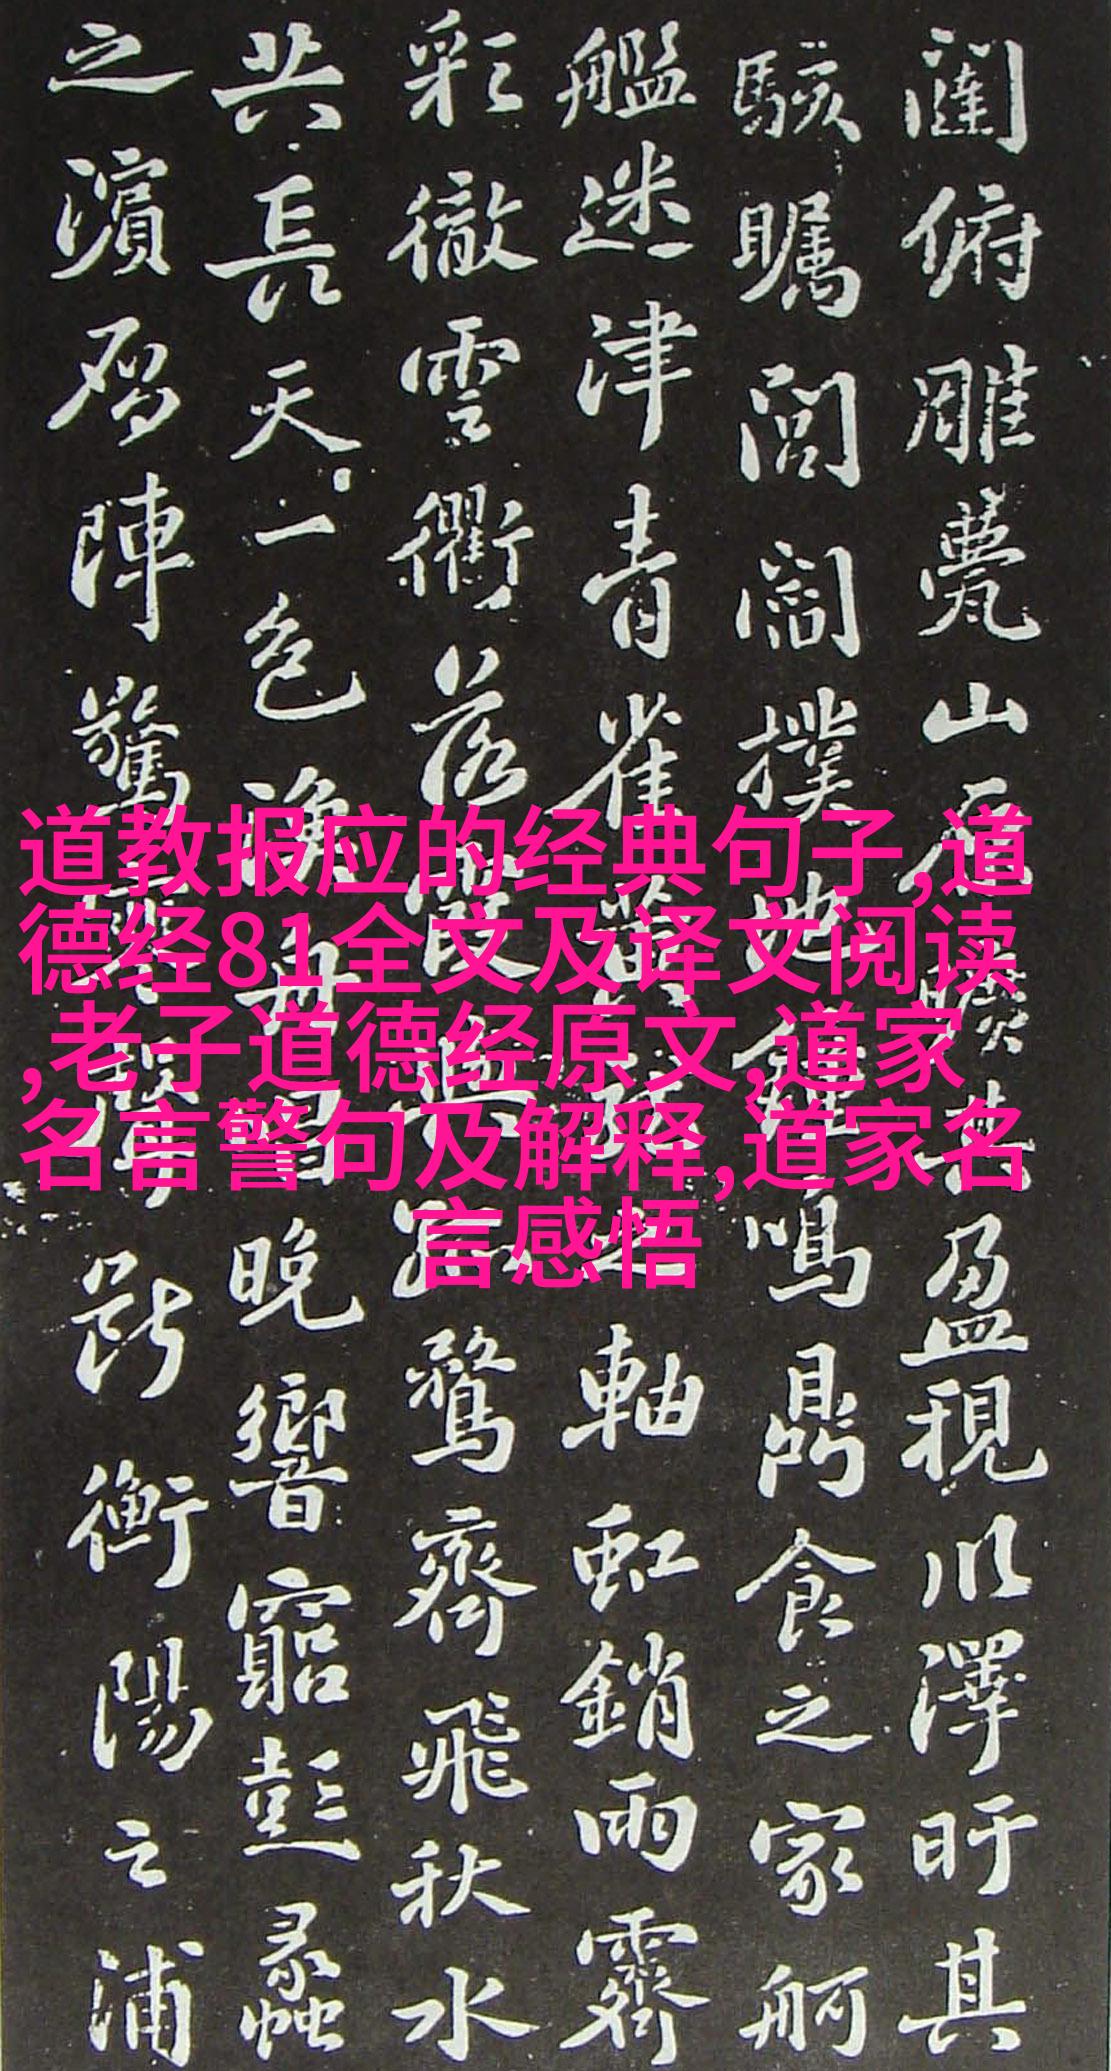 闥俯雕甍山原曠其盈視川澤盱其
駭矚閭閻撲地鐘鳴鼎食之家舸
艦迷津青雀黃龍之軸虹銷雨霽
彩徹雲衢落霞與孤鶩齊飛秋水
共長天一色漁舟唱晚響窮彭蠡
之濱雁陣驚寒聲斷衡陽之浦
道教报应的经典句子,道
德经81全文及译文阅读
,老子道德经原文,道家
名言警句及解释,道家名
言感悟